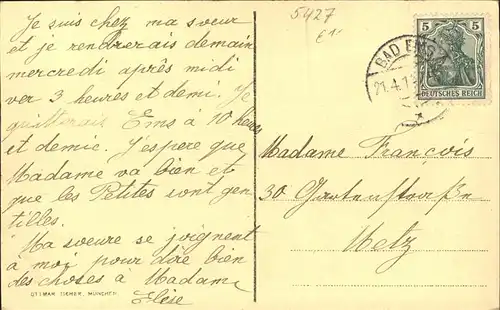 Je suis chez ma sœur
et je rendrerais demain
mercredi après midi
ver 3 heures et demi. Je
quitterais Ems à 10 heures
et demie. J'espere que
Madame va bien et
que les Petites sont gen-
tilles.
Ma sœure se joignent
à moi pour dire bien
des choses à Madame
Elise
OTTMAR ZIEHER, MÜNCHEN.
5427
5 5
DEUTSCHES REICH
BAD EMS
21.4.1
Madame François
30 Gartenstraße
Metz